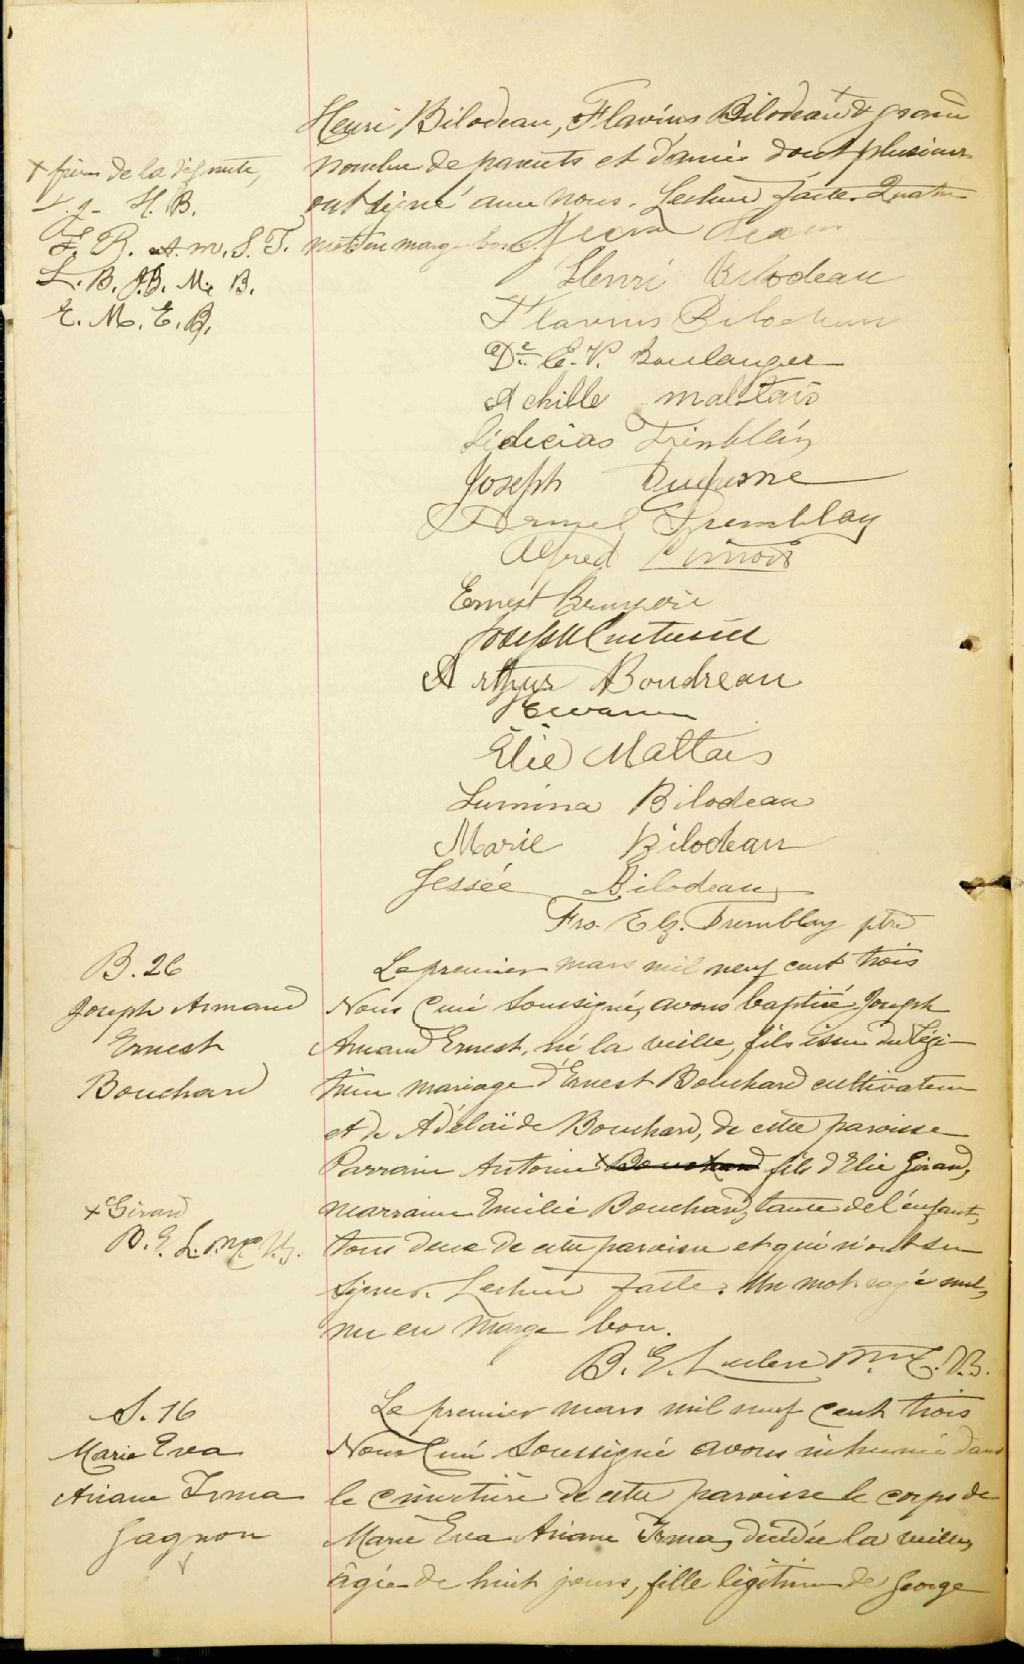 Henri Bilodeau, Flavius Bilodeau + & grand
nombre de parents et d'amis dont plusieurs
ont signé avec nous. Lecture faite. Quatre
mots en marge bons.
+ frères de la défunte,
H. B.
F. B. A. m. S. T.
L. B. J. B. M. B.
E. M. E. B.
Henri Bilodeau
Flavius Bilodeau
Dr. E. V. Boulanger
Achille maltais
Joseph Duchesne
Tremblay
Alfred
Ernest
Joseph
Arthur Boudreau
Élie Maltais
Lumina Bilodeau
Marie Bilodeau
Jessée Bilodeau
Frs. Elz. Tremblay ptre
B. 26
Joseph Armand
Ernest
Bouchard
Le premier mars mil neuf cent trois
Nous Curé soussigné, avons baptisé Joseph
Armand Ernest, né la veille, fils issu du légi-
time mariage d'Ernest Bouchard cultivateur
et de Adélaïde Bouchard, de cette paroisse
Parrain Antoine + Bouchard fils d'Elie Girard,
marraine Emilie Bouchard, tante de l'enfant,
tous deux de cette paroisse et qui n'ont su
signer. Lecture faite. Un mot rayé nul,
un en marge bon.
+ Girard
B. E. L.
B. E. Leclerc
S. 16
Marie Eva
Ariane Irma
Gagnon
Le premier mars mil neuf cent trois
Nous Curé soussigné avons inhumé dans
le cimetière de cette paroisse le corps de
Marie Eva Ariane Irma, décédée la veille,
âgée de huit jours, fille légitime de George